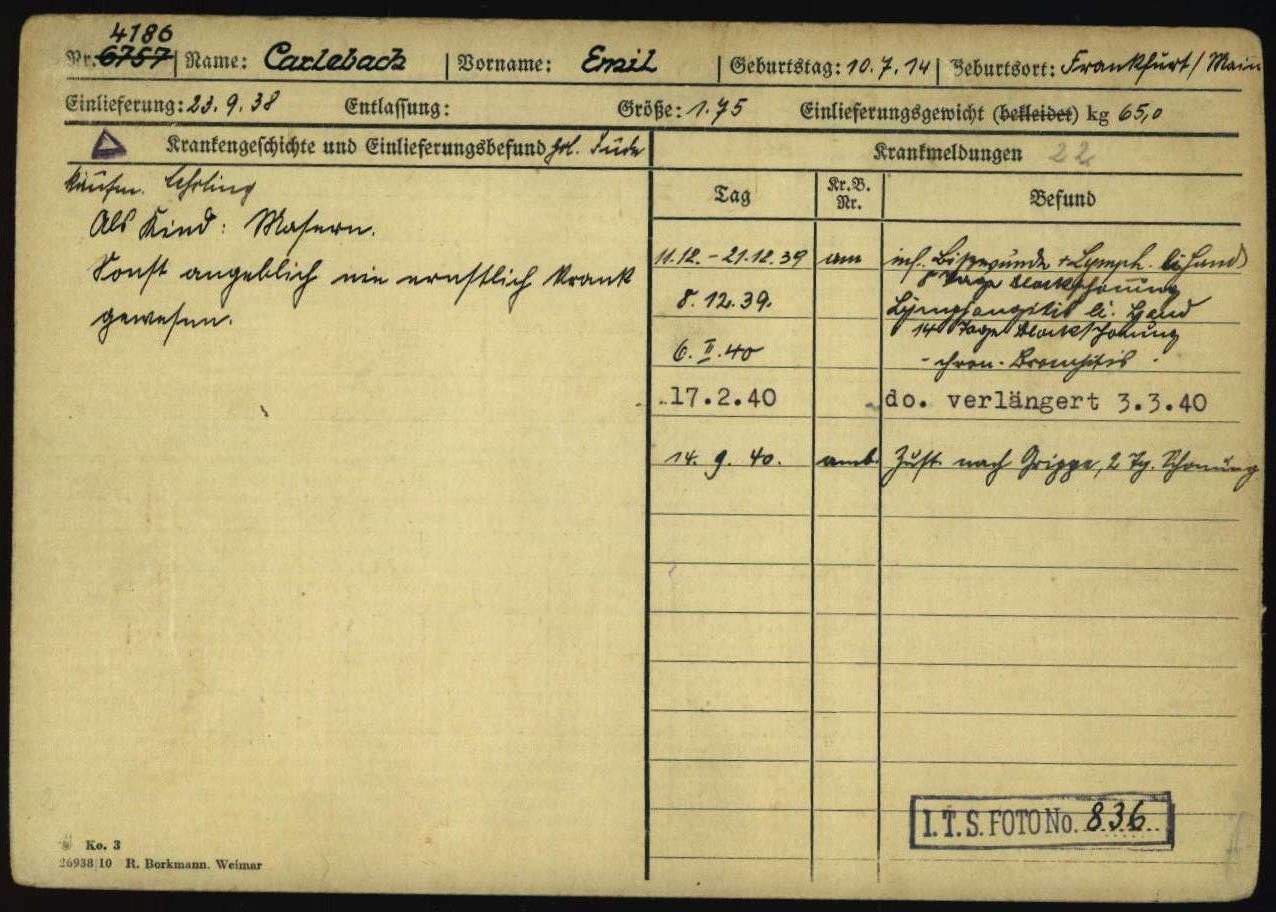 4186
Nr. 6757 Name: Carlebach Vorname: Emil Geburtstag: 10.7.14 Geburtsort: Frankfurt/Main
Einlieferung: 23.9.38 Entlassung: Größe: 1.75 Einlieferungsgewicht (bekleidet) kg 65,0
Krankengeschichte und Einlieferungsbefund Jude
Krankmeldungen 22
kaufm. Lehrling
Als Kind: Masern.
Sonst angeblich nie ernstlich krank
gewesen.
Tag Kr.B. Nr. Befund
11.12.-21.12.39 am inf. Bisswunde + Lymph. li Hand
8 Tage Blockschonung
8.12.39. Lymphangitis li. Hand
14 Tage Blockschonung
6.II.40 - chron. Bronchitis -
17.2.40 do. verlängert 3.3.40
14.9.40. amb. Zust. nach Grippe, 2 Tg. Schonung
I.T.S. FOTO No. 836
Ko. 3
26938 10 R. Borkmann. Weimar